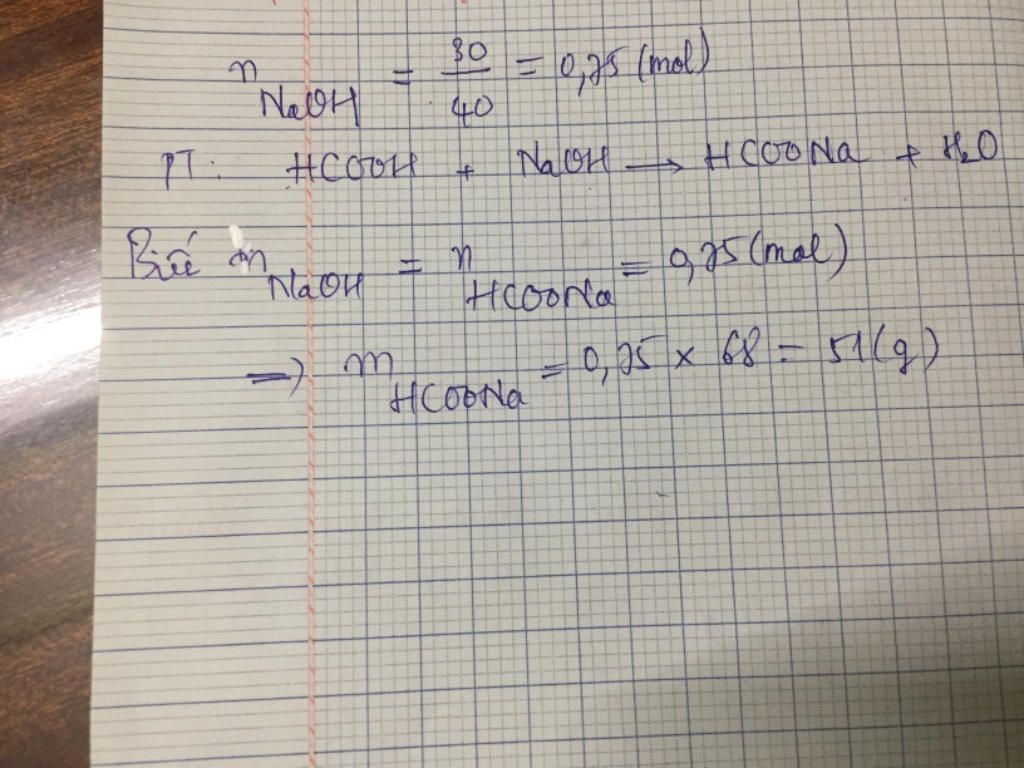 n NaOH = 30/40 = 0,75 (mol)
PT: HCOOH + NaOH → HCOONa + H₂O
n NaOH = n HCOONa = 0,75 (mol)
=> m HCOONa = 0,75 × 68 = 51 (g)